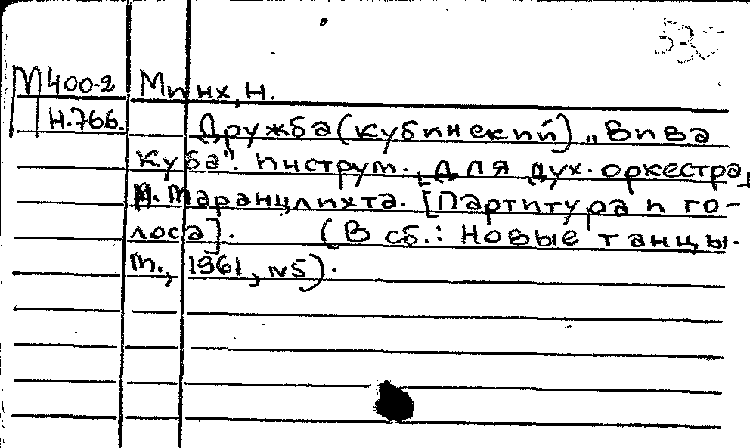 М400-2 Минх, Н.
Н.766. Дружба (кубинский) „Вива
Куба". Инструм. для дух. оркестра
Н. Таранцлихта. [Партитура и го-
лоса]. (В сб.: Новые танцы.
М., 1961, №5).